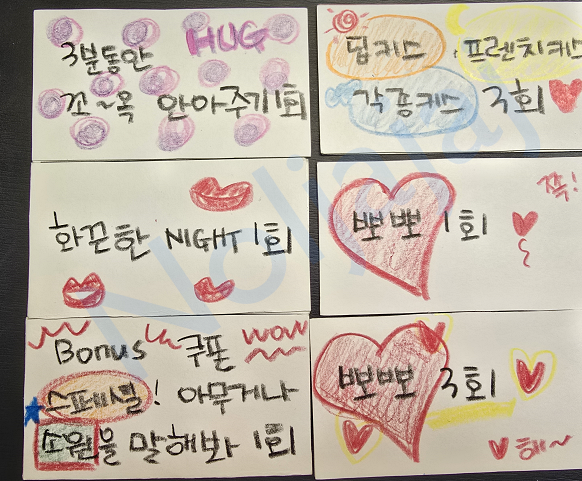 3분동안 HUG
꼬~옥 안아주기 1회
딥키스, 프렌치키스
각종키스 3회
화끈한 NIGHT 1회
쪽!
뽀뽀 1회
Bonus 쿠폰 WOW
스페셜! 아무거나
소원을 말해봐 1회
뽀뽀 3회
해~